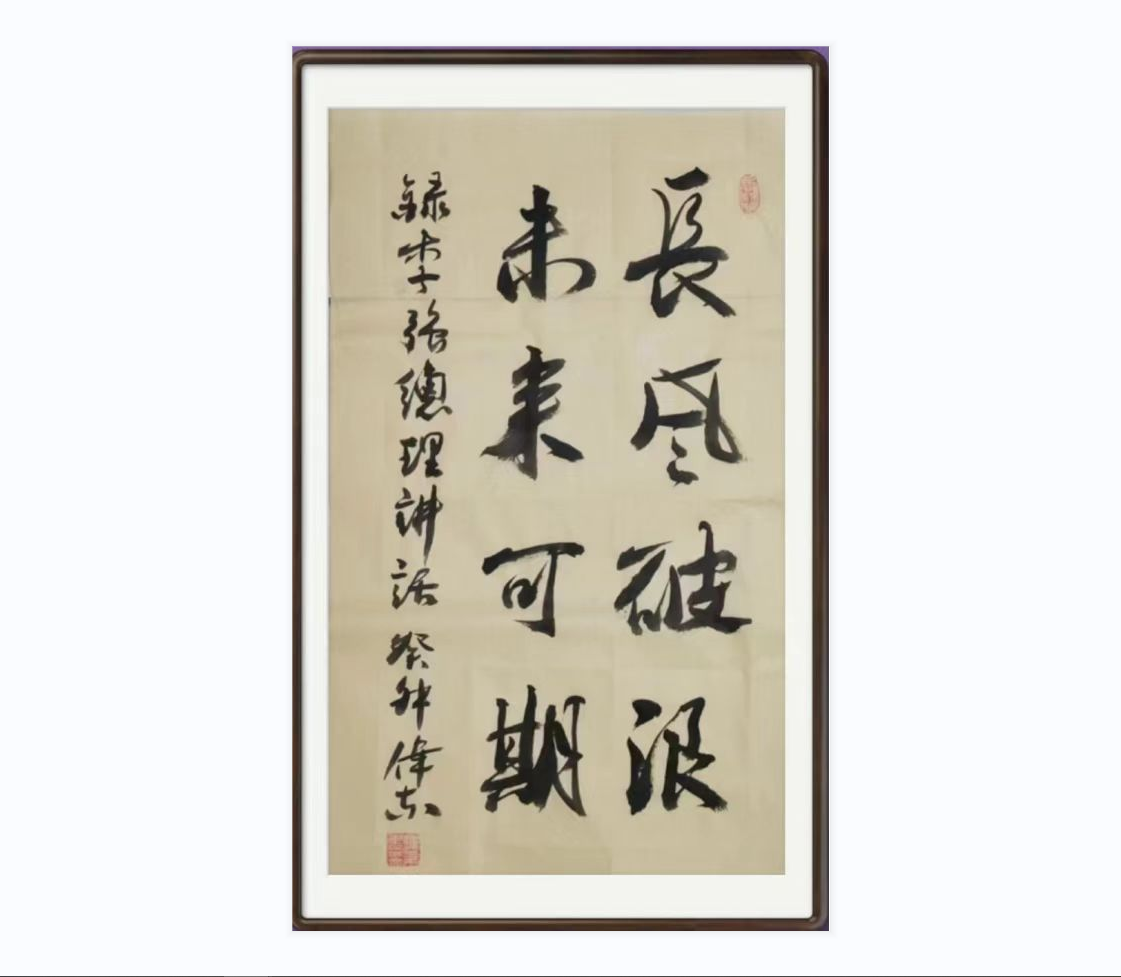 長風破浪
未来可期
録李強總理講話 癸卯 偉志